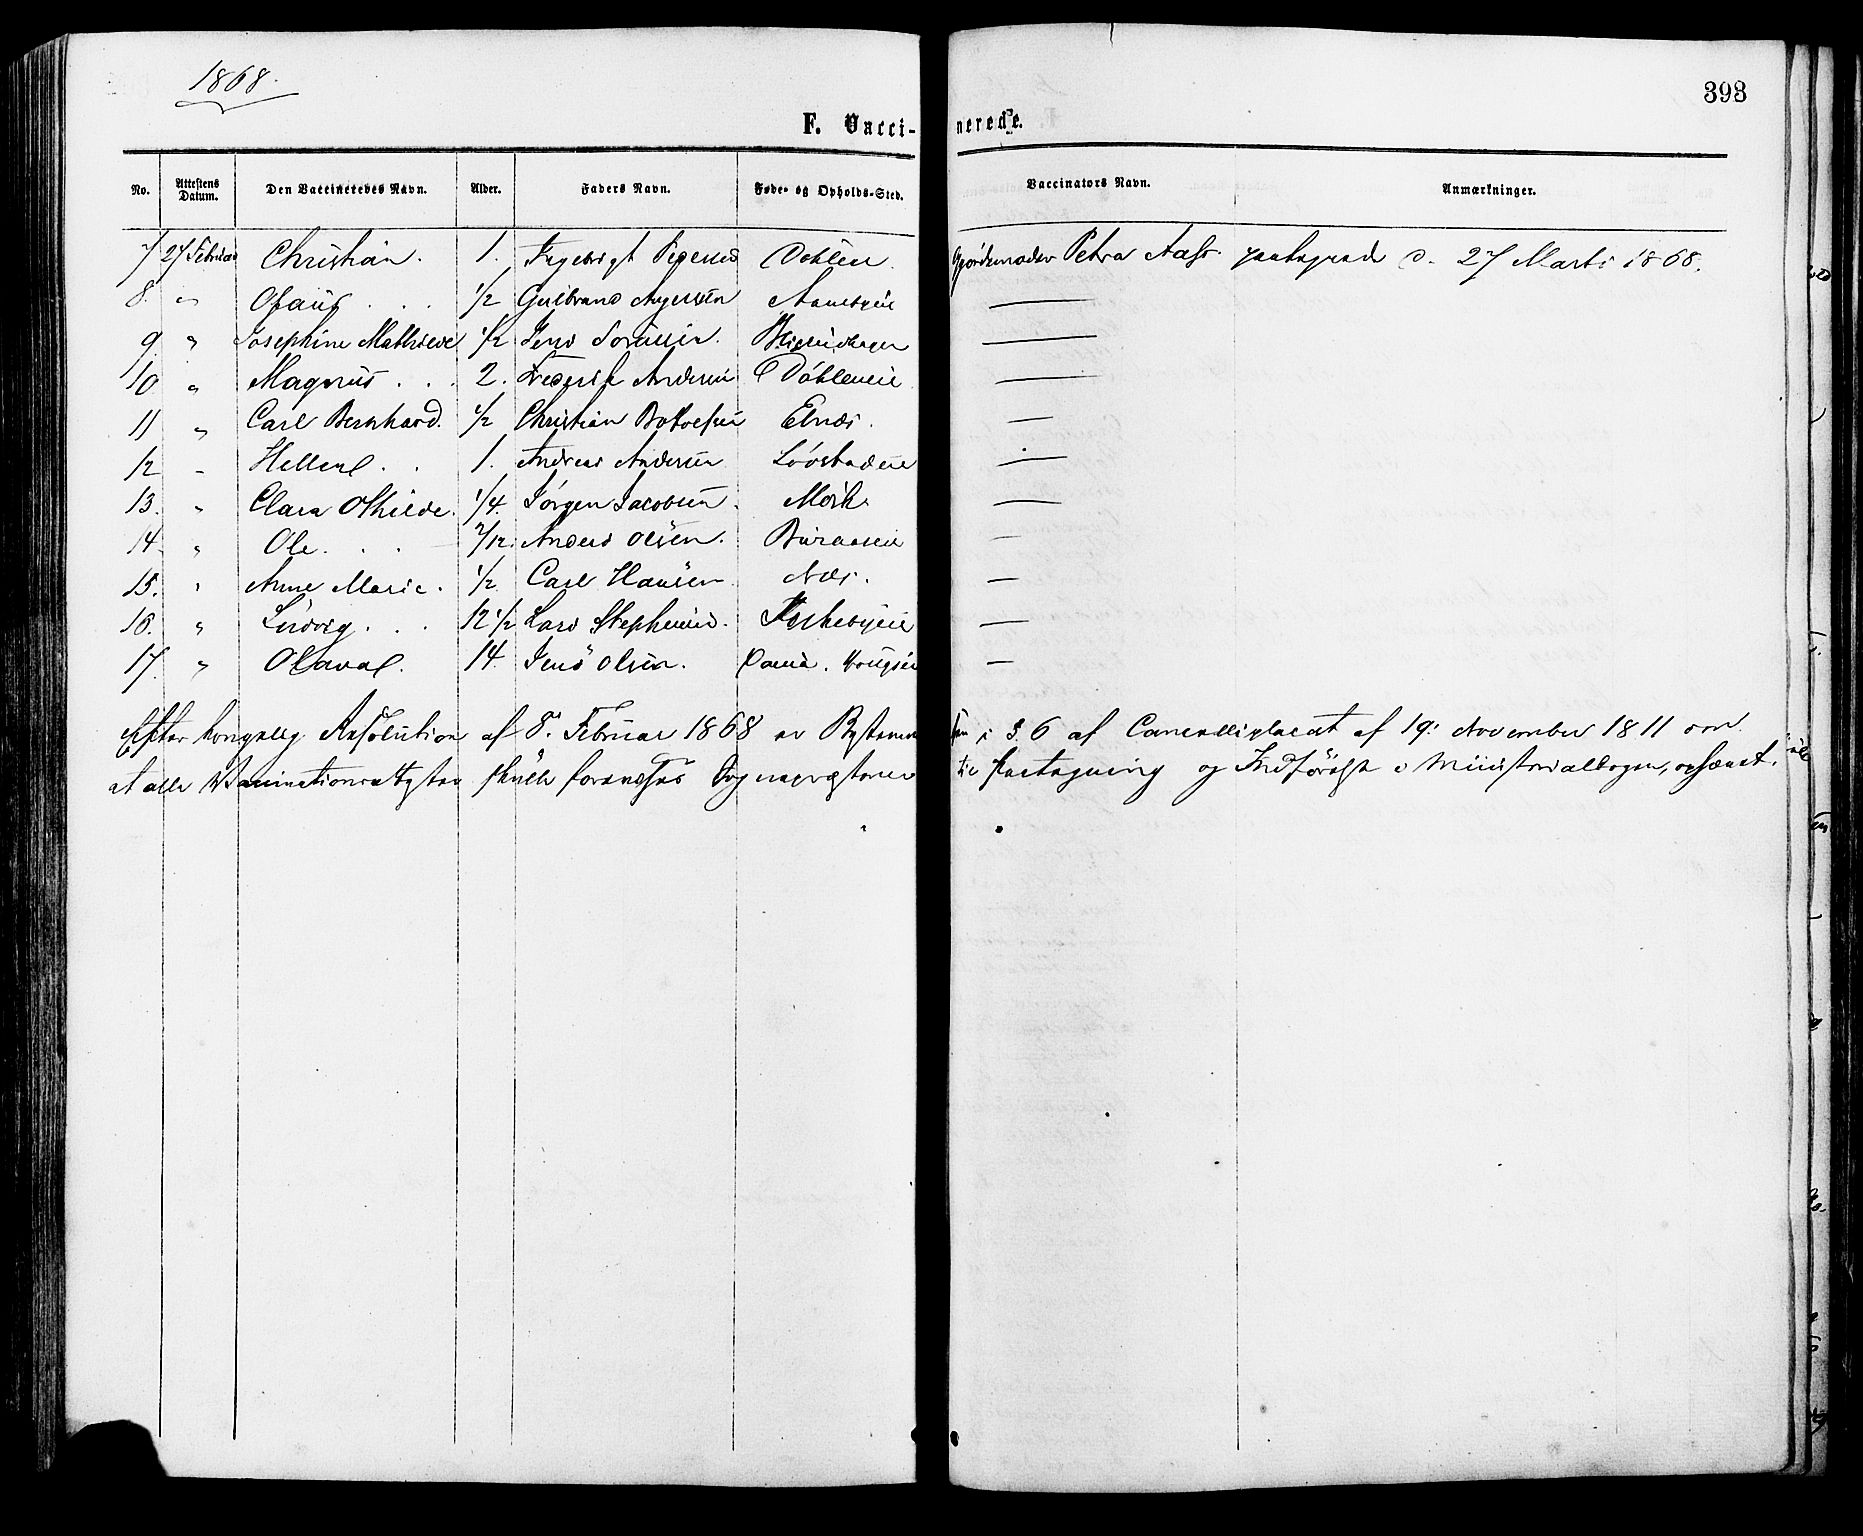 1868.
393
F. Vacci-nerede.
No. Attestens Datum. Den Vaccineredes Navn. Alder. Faders Navn. Føde- og Opholds-Sted. Vaccinators Navn. Anmærkninger.
7 27 Februar Christian. 1. Ingebrigt Pedersen Dohlen. Gjordemoder Petra Aass. paategnede d. 27 Marts 1868.
8. " Olaus . . . 1/2 Gulbrand —
9. " Josephine Mathilde 1/2 Jens —
10 " Magnus . . . 2. Frederik Andersen Döhleneie —
11 " Carl Bernhard. 1/2 Christian Elnæs. —
12 " Hellene . . 1. Andreas Andersen —
13. " Clara Othilde. 1/4. Jørgen Jacobsen. Mørk —
14. " Ole. . . . 7/12. Anders Olsen. Buraaseie —
15. " Anne Marie. 1/2 Carl Hansen. Næs. —
16. " Ludvig . . . 12 1/2 Lars Stephensen. —
17. " Olaval. 14. Jens Olsen. —
Efter kongelig Resolution af 8. Februar 1868 er Bestemmelsen i § 6 af Cancelliplacat af 19. November 1811 om
at alle Vaccinationsattester skulle forevises Sognepræsterne til Paategning og Indførelse i Ministerialbogen, ophævet.